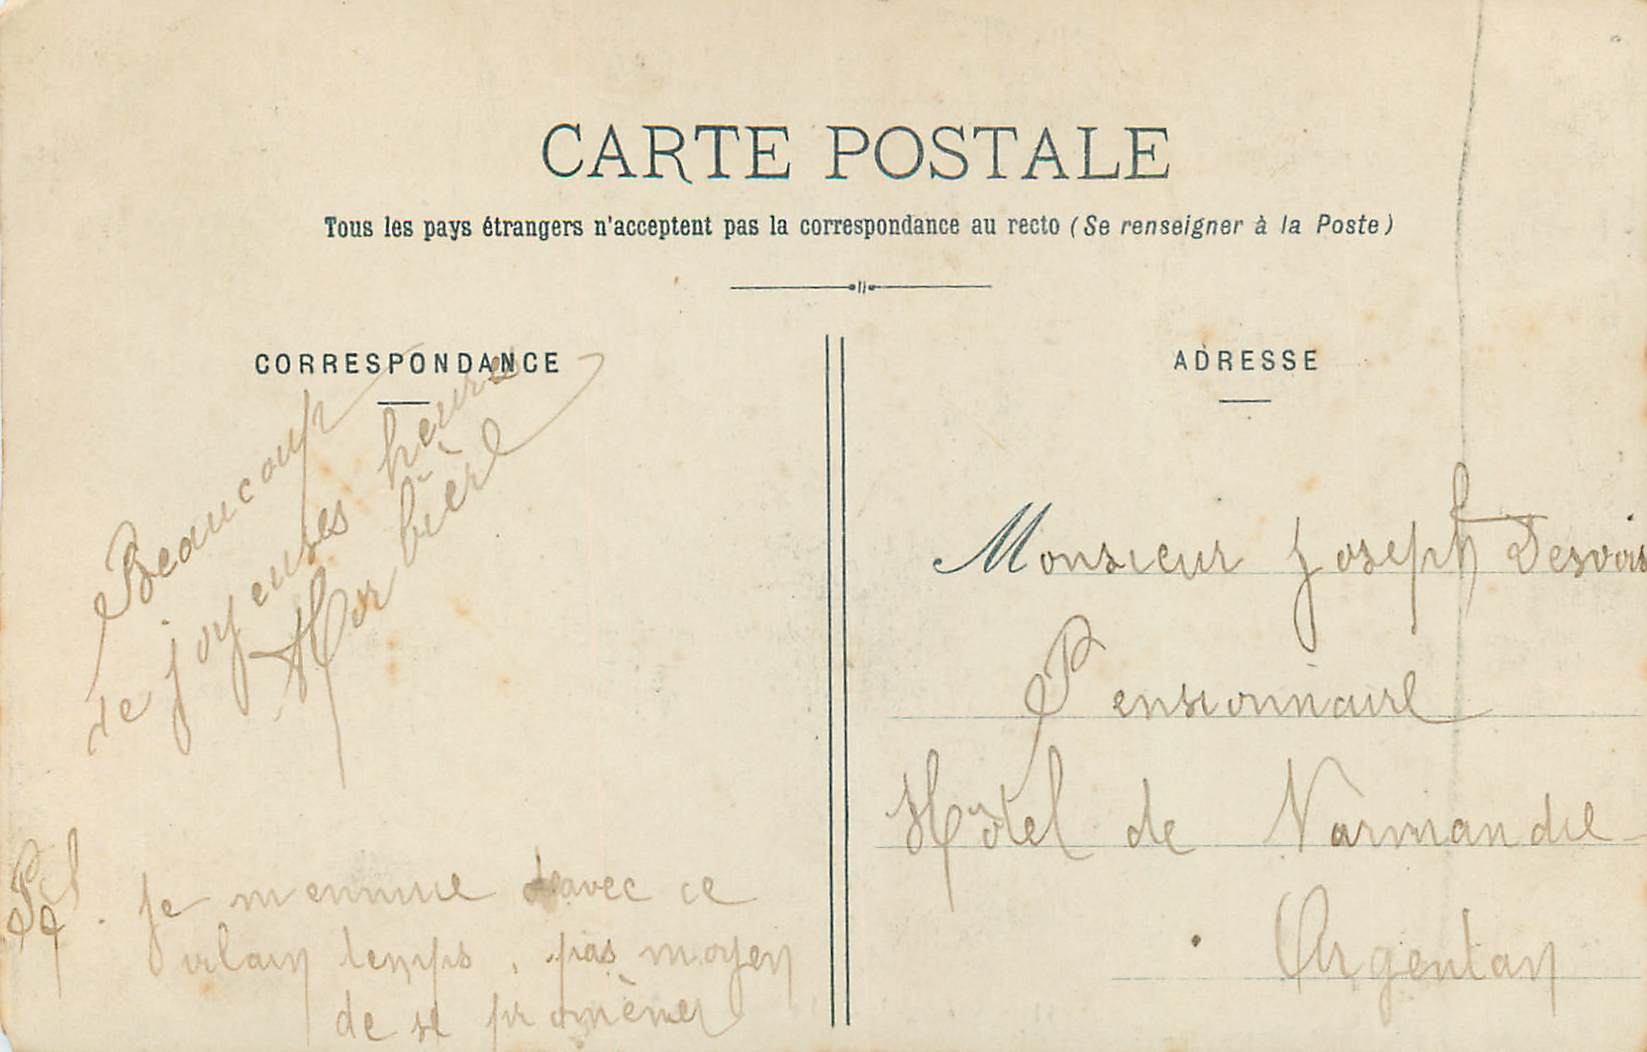 CARTE POSTALE
Tous les pays étrangers n'acceptent pas la correspondance au recto (Se renseigner à la Poste)
CORRESPONDANCE
Beaucoup
de joyeuses heures
PS. je mennuie avec ce
vilain temps, pas moyen
de se promèner
ADRESSE
Monsieur Joseph
Pensionnaire
Hôtel de Normandie
Argentan